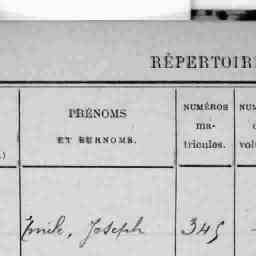 RÉPERTOIRE
PRÉNOMS
ET SURNOMS.
NUMÉROS
ma-
tricules.
Emile, Joseph
345